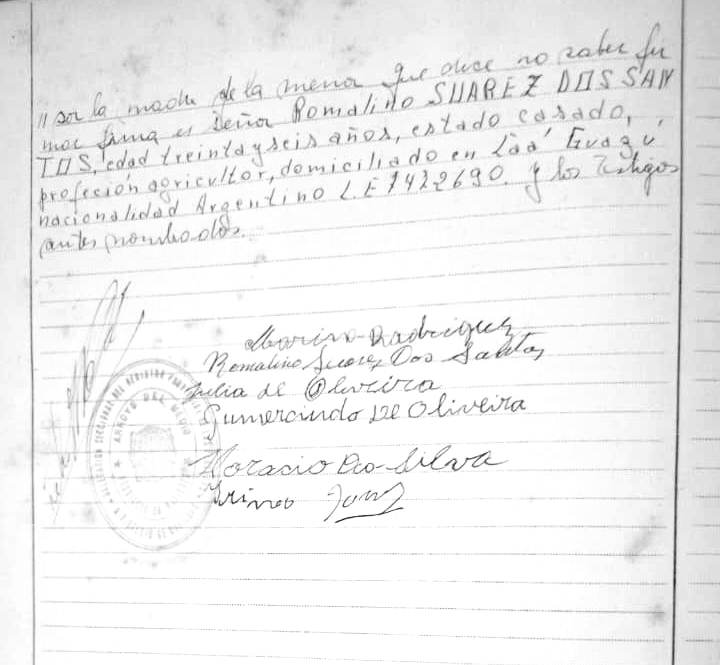 " por la madre de la menor que dice no saber fir
mar firma el señor Romalino SUAREZ DOS SAN
TOS, edad treinta y seis años, estado casado,
profeción agricultor, domiciliado en Guazú,
nacionalidad Argentino L.E 7422690. y los Testigos
antes nombrados.
Marino Rodriguez
Romalino Suarez Dos Santos
Julia de Oliveira
Gumercindo De Oliveira
Horacio Da Silva
ARROYO DEL MEDIO